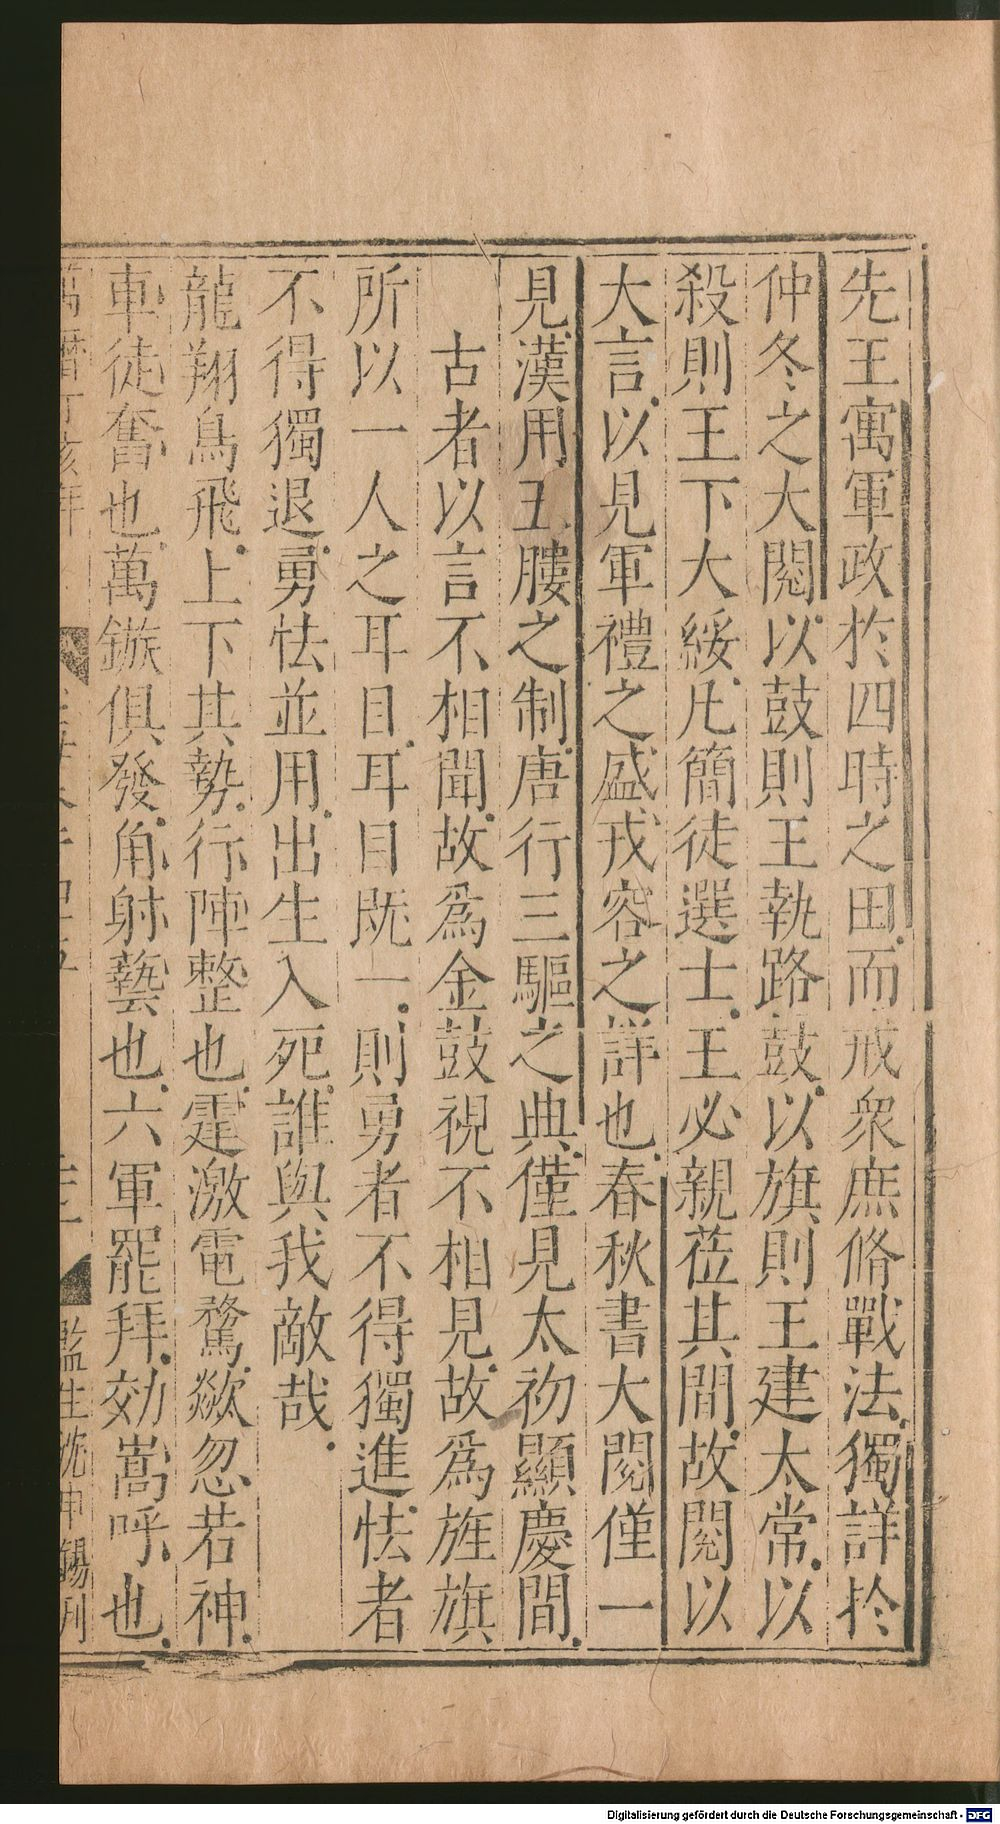 先王寓軍政於四時之田而戒衆庶脩戰法獨詳於
仲冬之大閱以鼓則王執路鼓以旗則王建太常以
殺則王下大綏凡簡徒選士王必親莅其間故閱以
大言以見軍禮之盛戎容之詳也春秋書大閱僅一
見漢用五膢之制唐行三驅之典僅見太初顯慶間
古者以言不相聞故爲金鼓視不相見故爲旌旗
所以一人之耳目耳目既一則勇者不得獨進怯者
不得獨退勇怯並用出生入死誰與我敵哉
龍翔鳥飛上下其勢行陣整也霆激電騖歘忽若神
車徒奮也萬鏃俱發角射藝也六軍罷拜効嵩呼也
萬曆丁亥年
監生沈申錫刊
Digitalisierung gefördert durch die Deutsche Forschungsgemeinschaft - DFG